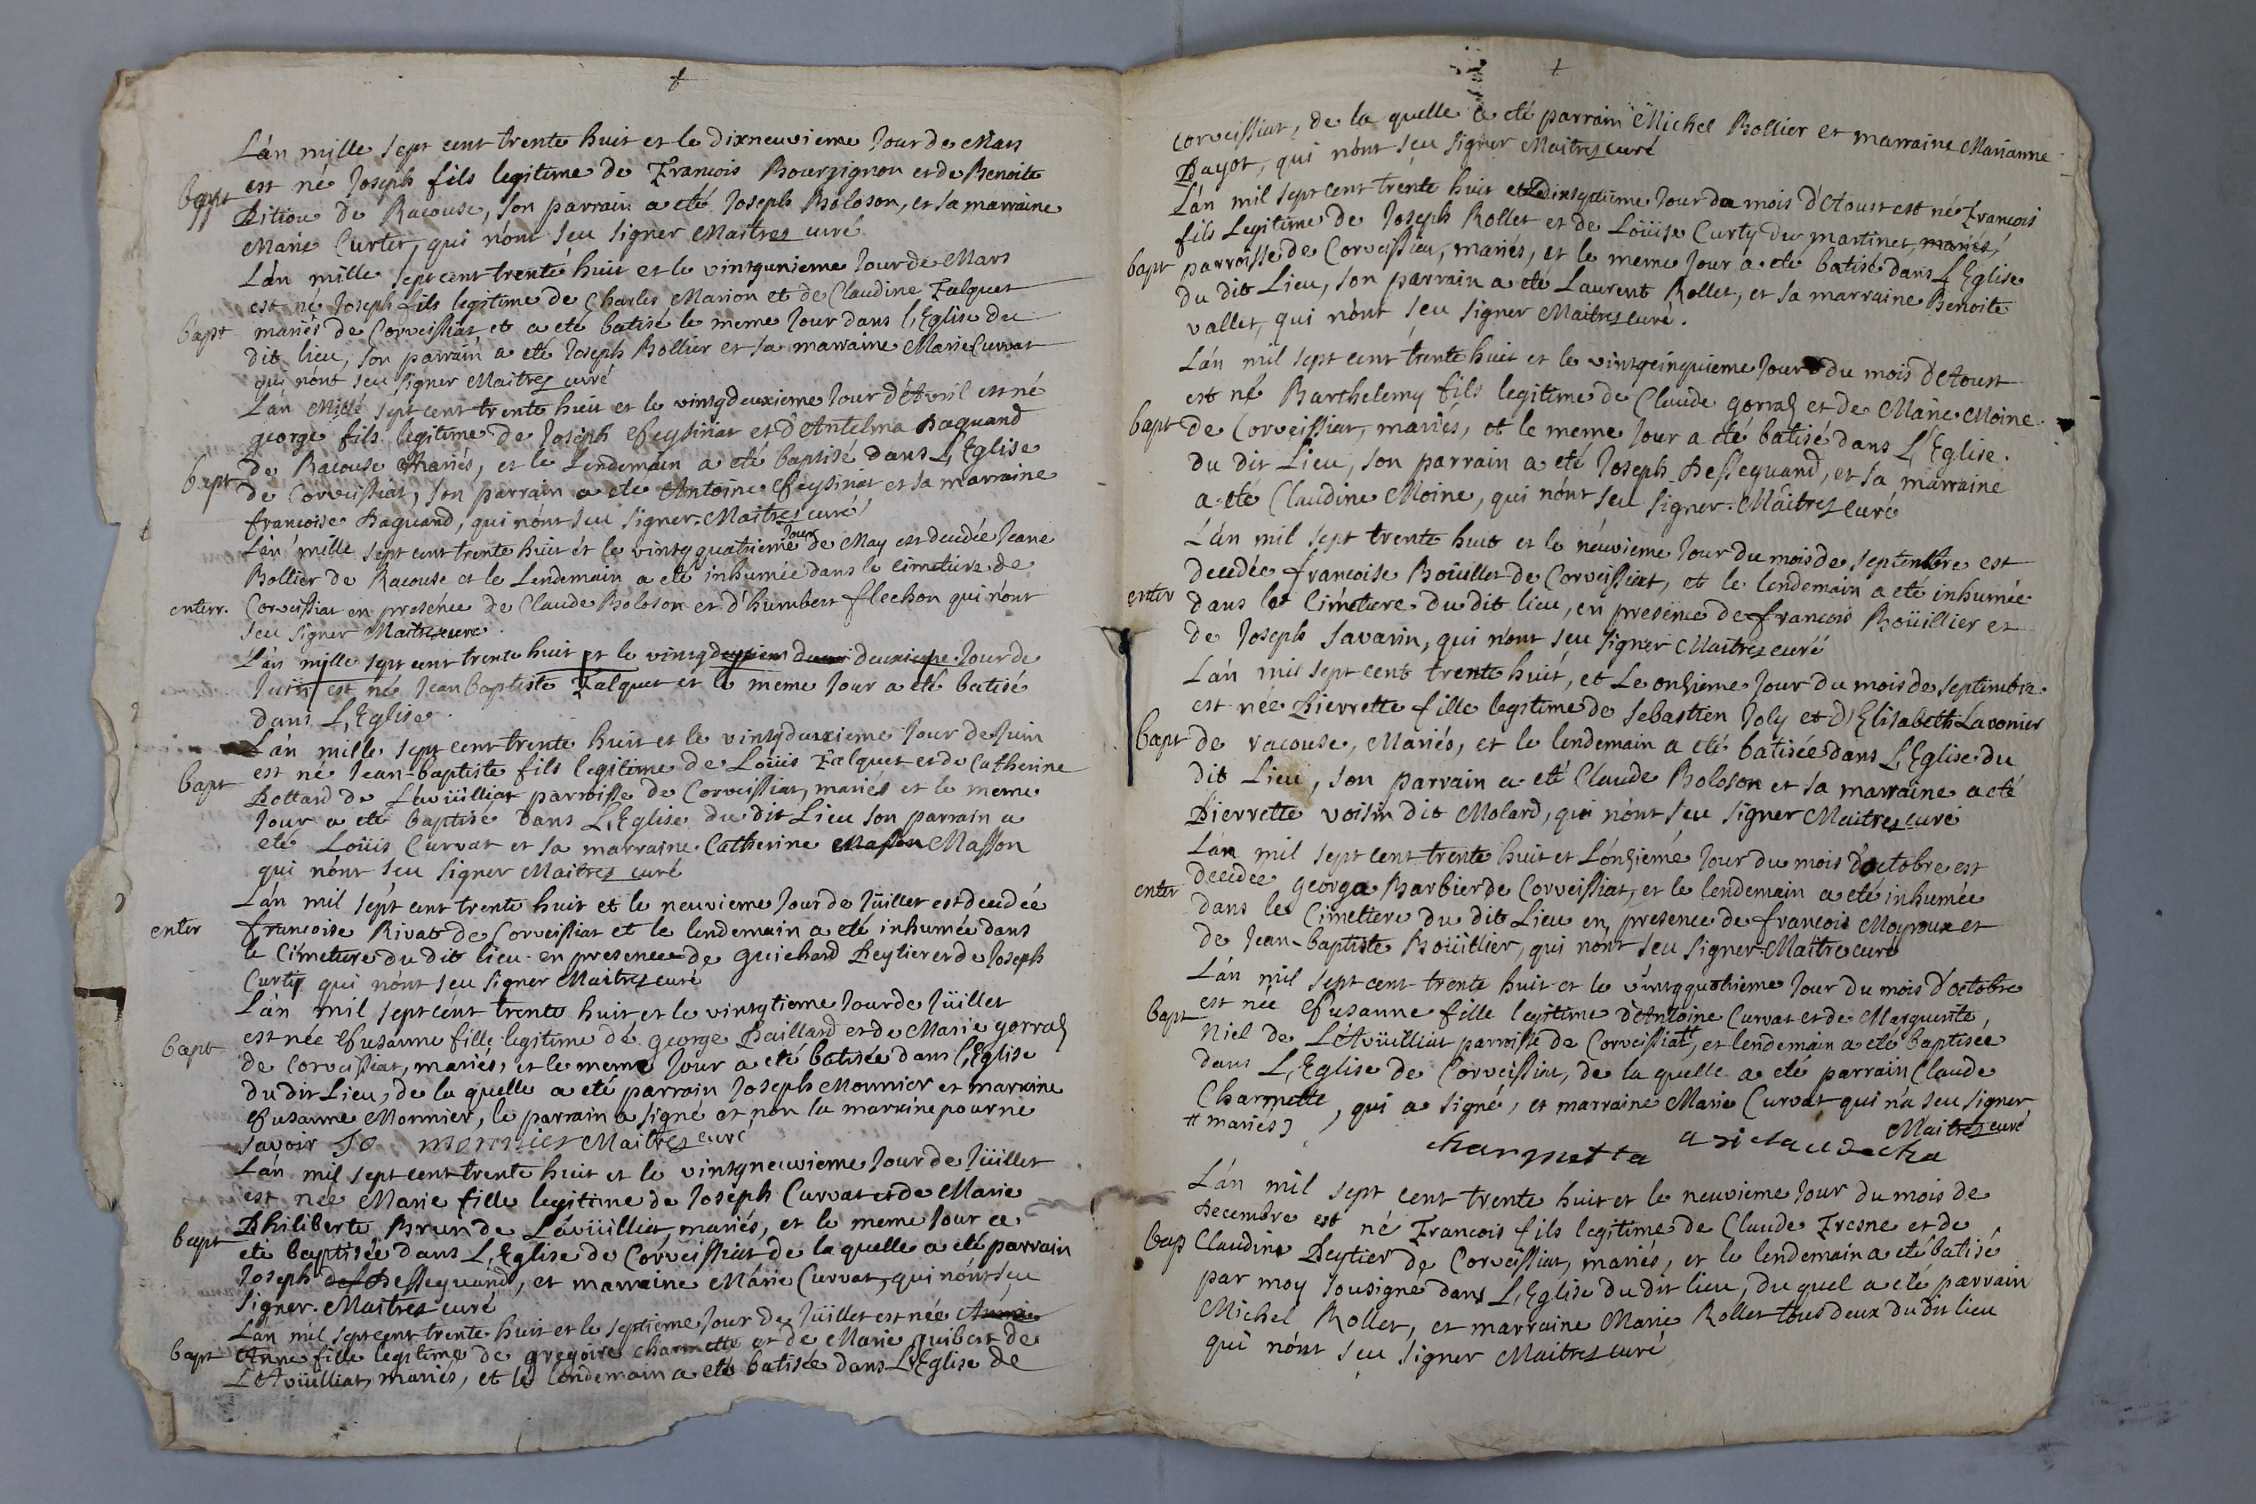 L'an mille sept cent trente huit et le dixneuvieme Jour de Mars
bapt est né Joseph fils legitime de François Bourgignon et de Benoite
Pitiou de Racouse, son parrain a eté Joseph Boloson, et sa marraine
Marie Curtet, qui n'ont sçu signer Maitrez curé
L'an mille sept cent trente huit et le vintgunieme Jour de Mars
est né Joseph fils legitime de Charles Marion et de Claudine Falquet
bapt mariés de Corveissiat, et a eté batisé le meme Jour dans l'Eglise du
dit lieu, son parrain a eté Joseph Bollier et sa marraine Marie Curvat
qui n'ont sçu signer Maitrez curé
L'an Mille sept cent trente huit et le vintgdeuxieme Jour d'Avril est né
george fils legitime de Joseph Feysinat et d'Antelma Daquand
bapt de Racouse Mariés, et le Lendemain a eté baptisé dans L'Eglise
de Corveissiat, son parrain a eté Antoine Feysinat et sa marraine
francoise Daquand, qui n'ont sçu signer. Maitrez curé
L'an mille sept cent trente huit et le vintgquatrieme Jour de May est decedée Jeane
Bollier de Racouse et le Lendemain a eté inhumée dans le cimetiere de
enterr. Corveissiat en presence de Claude Boloson et d'humbert flechon qui n'ont
sçu signer Maitrez curé.
L'an mille sept cent trente huit et le vintg deuxieme Jour de
Juin est né Jean baptiste Falquet et le meme Jour a eté batisé
dans L'Eglise.
L'an mille sept cent trente huit et le vintgdeuxieme Jour de Juin
est né Jean-baptiste fils legitime de Loüis Falquet et de Catherine
bapt Hottard de L'avüilliat parroisse de Corveissiat, mariés et le meme
Jour a eté baptisé dans L'Eglise du dit Lieu son parrain a
eté Loüis Curvat et sa marraine Catherine Masson Masson
qui n'ont sçu signer Maitrez curé
L'an mil sept cent trente huit et le neuvieme Jour de Jüillet est decedée
enter francoise Rivat de Corveissiat et le lendemain a eté inhumée dans
le Cimetiere du dit lieu en presence de guichard Peytier et de Joseph
Curty qui n'ont sçu signer Maitrez curé
L'an mil sept cent trente huit et le vintgtieme Jour de Jüillet
est née Susanne fille legitime de george Paillard et de Marie gorraz
bapt de Corveissiat, mariés, et le meme Jour a eté batisée dans L'Eglise
du dit Lieu, de la quelle a eté parrain Joseph Monnier et marraine
Susanne Monnier, le parrain a signé et non la marraine pour ne
savoir Jo monnier Maitrez curé
L'an mil sept cent trente huit et le vintgneuvieme Jour de Jüillet
est née Marie fille legitime de Joseph Curvat et de Marie
Philiberte Brun de L'avüilliat, mariés, et le meme Jour a
bapt eté baptisée dans L'Eglise de Corveissiat de la quelle a eté parrain
Joseph des Dessequand, et marraine Marie Curvat, qui n'ont sçu
signer. Maitrez curé
L'an mil sept cent trente huit et le septieme Jour de Jüillet est née
bapt Anne fille legitime de gregoire charmette et de Marie guibert de
L'Avüilliat, mariés, et le lendemain a eté batisée dans L'Eglise de
corveissiat, de la quelle a eté parrain Michel Bollier et marraine Marianne
Dayot, qui n'ont sçu signer Maitrez curé
L'an mil sept cent trente huit et Jour du mois d'Aoust est né François
fils Legitime de Joseph Rollet et de Loüise Curty du martinet, mariés,
bapt parroisse de Corveissiat, mariés, et le meme Jour a eté batisé dans L'Eglise
du dit Lieu, son parrain a eté Laurent Rollet, et sa marraine Benoite
vallet, qui n'ont sçu signer Maitrez curé.
L'an mil sept cent trente huit et le vintgcinquieme Jour du mois d'Aoust
est né Barthelemy fils legitime de Claude gorraz et de Marie Moine
bapt de Corveissiat, mariés, et le meme Jour a eté batisé dans L'Eglise.
du dit Lieu, son parrain a eté Joseph Dessequand, et sa marraine
a eté Claudine Moine, qui n'ont sçu signer. Maitrez curé
L'an mil sept trente huit et le neuvieme Jour du mois de septembre est
decedée francoise Boüillet de Corveissiat, et le lendemain a eté inhumée
enter dans le Cimetiere du dit lieu, en presence de francois Boüillier et
de Joseph Savarin, qui n'ont sçu signer Maitrez curé
L'an mil sept cent trente huit, et Le onzieme Jour du mois de septembre.
est née Pierrette fille legitime de Sebastien Joly et d'Elisabeth Lavonier
bapt de racouse, Mariés, et le lendemain a eté batisée dans L'Eglise du
dit Lieu, son parrain a eté Claude Boloson et sa marraine a eté
Pierrette voisin dit Molard, qui n'ont sçu signer Maitrez curé
L'an mil sept cent trente huit et L'onzieme Jour du mois d'octobre est
enter decedée george Barbier de Corveissiat, et le lendemain a eté inhumée
dans le Cimetiere du dit Lieu en presence de francois Moyroux et
de Jean-baptiste Boüillier, qui n'ont sçu signer. Maitre curé
L'an mil sept cent trente huit et le vintgquatrieme Jour du mois d'octobre
est née Susanne fille legitime d'Antoine Curvat et de Marguerite
bapt Niel de L'Avüilliat parroisse de Corveissiat#, et lendemain a eté baptisée
dans L'Eglise de Corveissiat, de la quelle a eté parrain Claude
Charmette, qui a signé, et marraine Marie Curvat qui n'a sçu signer
# mariés
Maitrez curé
charmetta
L'an mil sept cent trente huit et le neuvieme Jour du mois de
Decembre est né Francois fils legitime de Claude Fresne et de
bap Claudine Peytier de Corveissiat, mariés, et le lendemain a eté batisé
par moy sousigné dans L'Eglise du dit lieu, du quel a eté parrain
Michel Rollet, et marraine Marie Rollet tous deux du dit lieu
qui n'ont sçu signer Maitrez curé